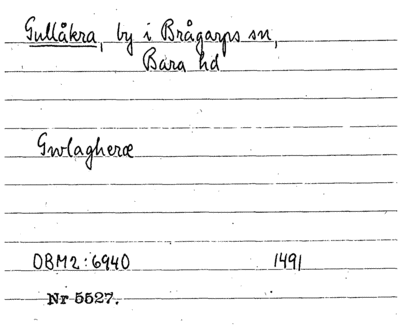 Gullåkra, by i Brågarps sn,
Bara hd
Gwlagheræ
OBM2:6940 1491
Nr 5527.